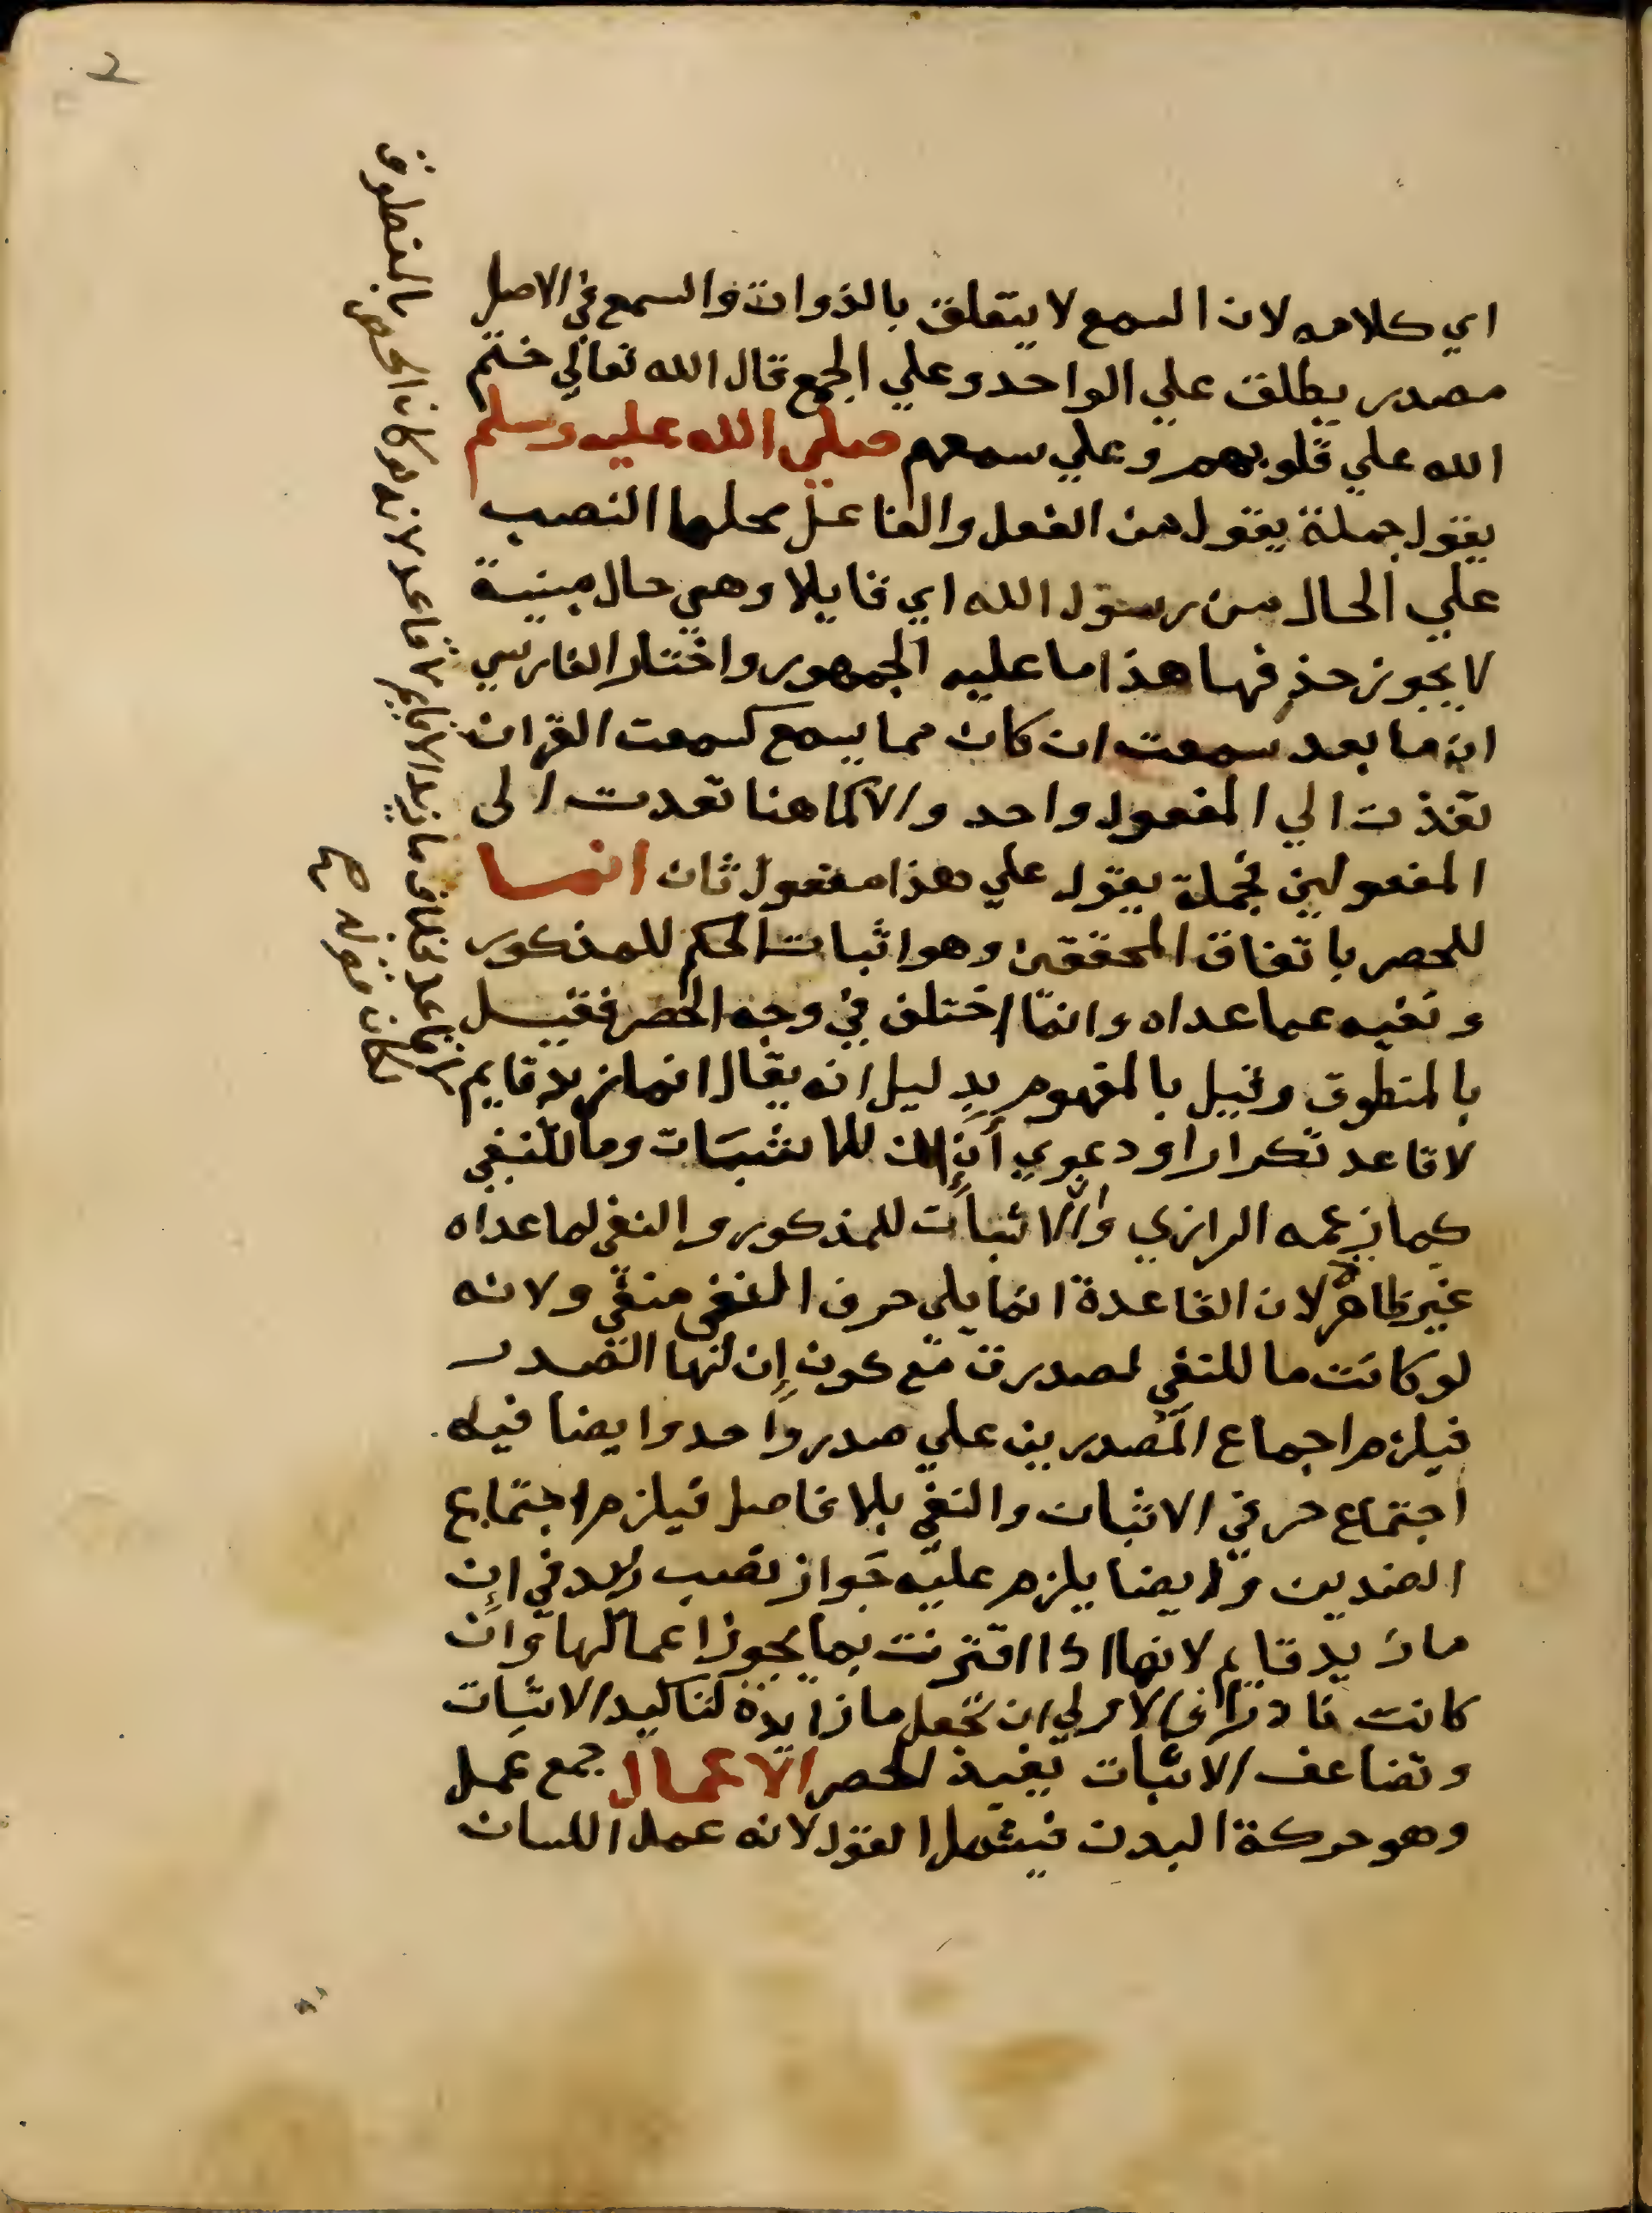 2
اي كلامه لان السمع لا يتعلق بالذوات والسمع في الاصل
مصدر يطلق علي الواحد وعلي الجمع قال الله تعالي ختم
الله علي قلوبهم وعلي سمعهم صلي الله عليه وسلم
يقول جملة يقول من الفعل والفاعل محلها النصب
علي الحال من رسول الله اي قايلا وهي حال مبنية
لا يجوز حذفها هذا ما عليه الجمهور واختار الفارسي
ان ما بعد سمعت ان كان مما يسمع كسمعت القران
تعدت الي المفعول واحد والا كما هنا تعدت الى
المفعولين فجملة يقول علي هذا مفعول ثان انما
للحصر باتفاق المحققين وهو اثبات الحكم للمذكور
ونفيه عما عداه وانما اختلف في وجه الحصر فقيل
بالمنطوق وقيل بالمفهوم بدليل انه يقال انما زيد قايم
لا قاعد تكرارا ودعوي أن ان للاثبات وما للنفي
كما زعمه الرازي والاثبات للمذكور والنفي لما عداه
غير ظاهر لان القاعدة انما يلي حرف النفي منفي ولانه
لو كانت ما للنفي لصدرت مع كون إن لها التصدر
فيلزم اجماع المصدرين علي صدر واحد وايضا فيه
اجتماع حرفي الاثبات والنفي بلا فاصل فيلزم اجتماع
الضدين وايضا يلزم عليه جواز نصب زيد في إن
ما زيد قايم لانها اذا اقترنت بما يجوز اعمالها وان
كانت نادرا فالاولي ان تجعل ما زايدة لتاكيد الاثبات
وتضاعف الاثبات يفيد الحصر الاعمال جمع عمل
وهو حركة البدن فيشمل القول لانه عمل اللسان
لا قاعد بخلاف ما زيد الا قايم لا قاعد لانه لو كان الحصر بالمنطوق
لكان مثله صح